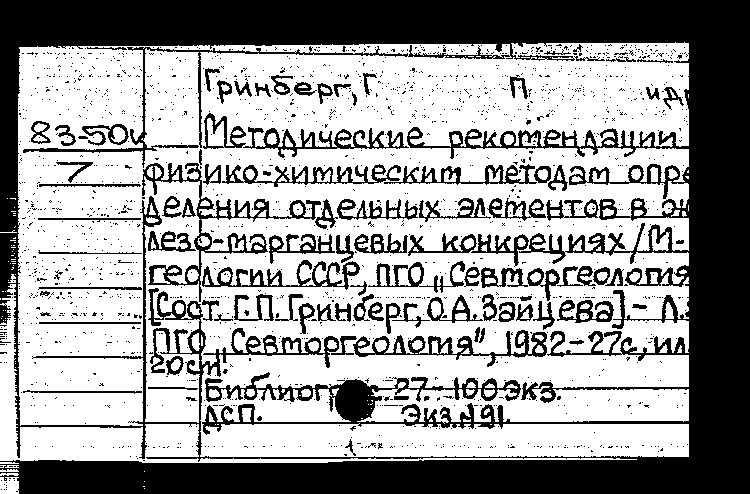 Гринберг, Г. П. и др
83-50к Методические рекомендации
7 физико-химическим методам опре
деления отдельных элементов в же
лезо-марганцевых конкрециях / М-
геологии СССР, ПГО „Севморгеология
[Сост. Г.П. Гринберг, О.А. Зайцева]. – Л.:
ПГО „Севморгеология", 1982.-27с., ил.
20см.
Библиогр. с. 27.- 100 экз.
ДСП. Экз.№91.